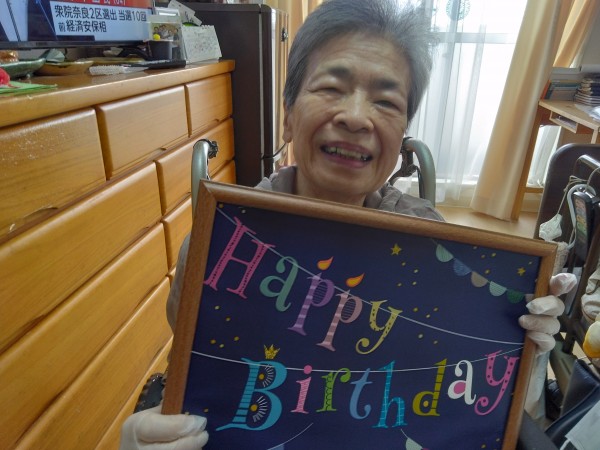 衆院奈良2区選出 当選10回
前経済安保相
Happy
Birthday